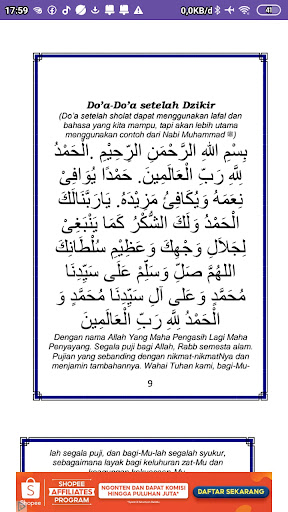 17:59
0,0KB/d
41
Do'a-Do'a setelah Dzikir
(Do'a setelah sholat dapat menggunakan lafal dan
bahasa yang kita mampu, tapi akan lebih utama
menggunakan contoh dari Nabi Muhammad ﷺ)
بِسْمِ اللهِ الرَّحْمَنِ الرَّحِيْمِ .الْحَمْدُ
لِلَّهِ رَبِّ الْعَالَمِينَ. حَمْدًا يُوَافِىْ
نِعَمَهُ وَيُكَافِئُ مَزِيْدَهُ. يَارَبَّنَالَكَ
الْحَمْدُ وَلَكَ الشُّكْرُ كَمَا يَنْبَغِىْ
لِجَلَالِ وَجْهِكَ وَعَظِيْمِ سُلْطَانِكَ
اللهُمَّ صَلِّ وَسَلِّمْ عَلَى سَيِّدِنَا
مُحَمَّدٍ وَعَلَى آلِ سَيِّدِنَا مُحَمَّدٍ وَ
الْحَمْدُ لِلَّهِ رَبِّ الْعَالَمِيْنَ
Dengan nama Allah Yang Maha Pengasih Lagi Maha
Penyayang. Segala puji bagi Allah, Rabb semesta alam.
Pujian yang sebanding dengan nikmat-nikmatNya dan
menjamin tambahannya. Wahai Tuhan kami, bagi-Mu-
9
lah segala puji, dan bagi-Mu-lah segala syukur,
sebagaimana layak bagi keluhuran zat-Mu dan
Shopee
SHOPEE
AFFILIATES
PROGRAM
NGONTEN DAN DAPAT KOMISI
HINGGA PULUHAN JUTA*
DAFTAR SEKARANG